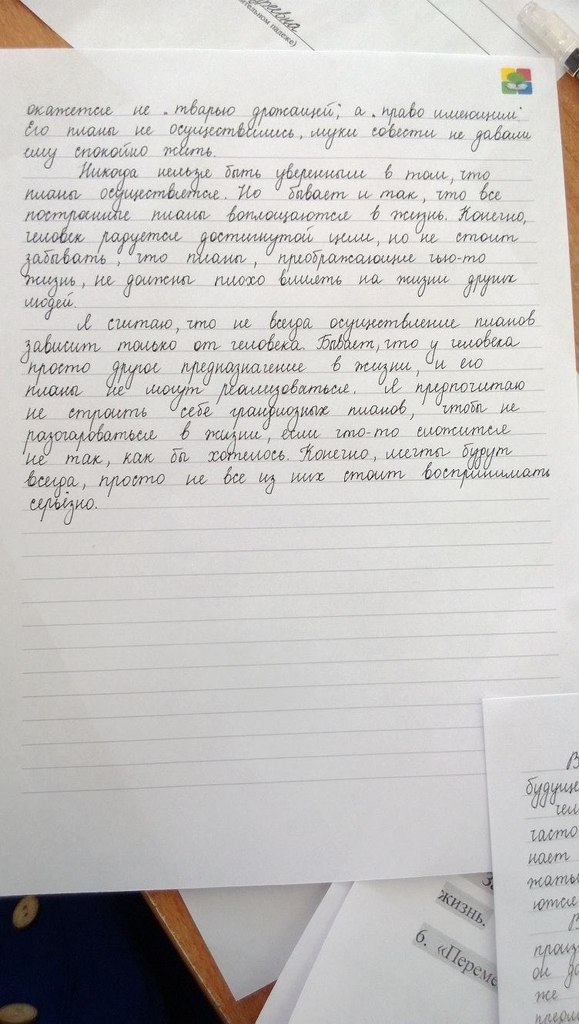 тельном падеже)
окажется не „тварью дрожащей", а „право имеющим".
Его планы не осуществились, муки совести не давали
ему спокойно жить.
Никогда нельзя быть уверенным в том, что
планы осуществятся. Но бывает и так, что все
построенные планы воплощаются в жизнь. Конечно,
человек радуется достигнутой цели, но не стоит
забывать, что планы, преображающие чью-то
жизнь, не должны плохо влиять на жизни других
людей.
Я считаю, что не всегда осуществление планов
зависит только от человека. Бывает, что у человека
просто другое предназначение в жизни, и его
планы не могут реализоваться. Я предпочитаю
не строить себе грандиозных планов, чтобы не
разочароваться в жизни, если что-то сложится
не так, как бы хотелось. Конечно, мечты будут
всегда, просто не все из них стоит воспринимать
серьёзно.
В
будуще
чел
часто
нает
жать
ются
В
произ
он до
же
преом
жизнь.
6. «Переме